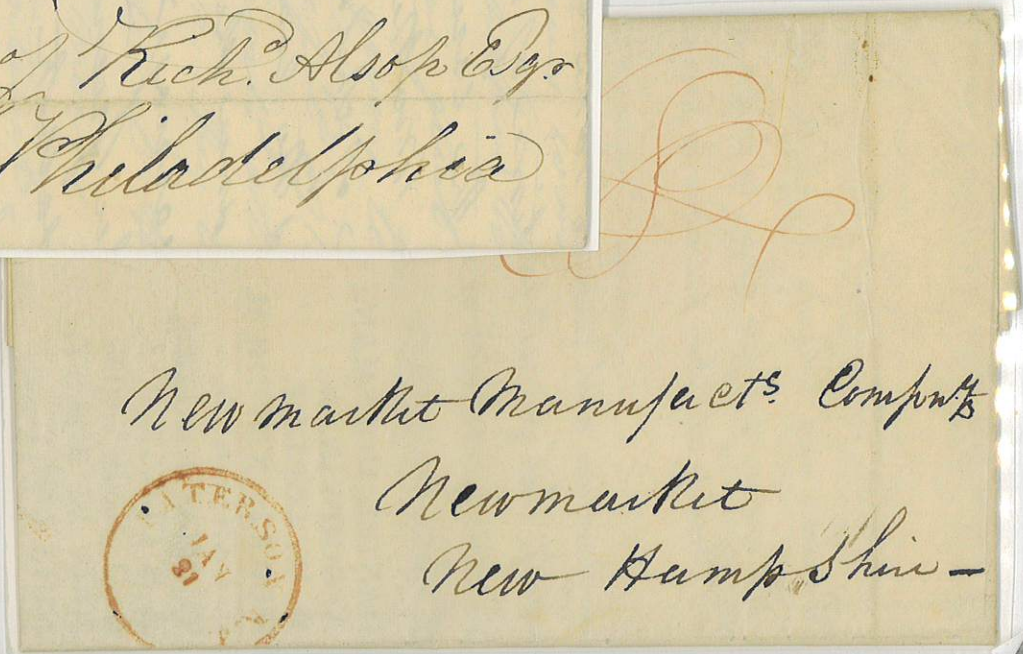 of Richd. Alsop Esqr
Philadelphia
Newmarket Manufacts. Compny
Newmarket
New Hampshire —
PATERSON
JAN
31